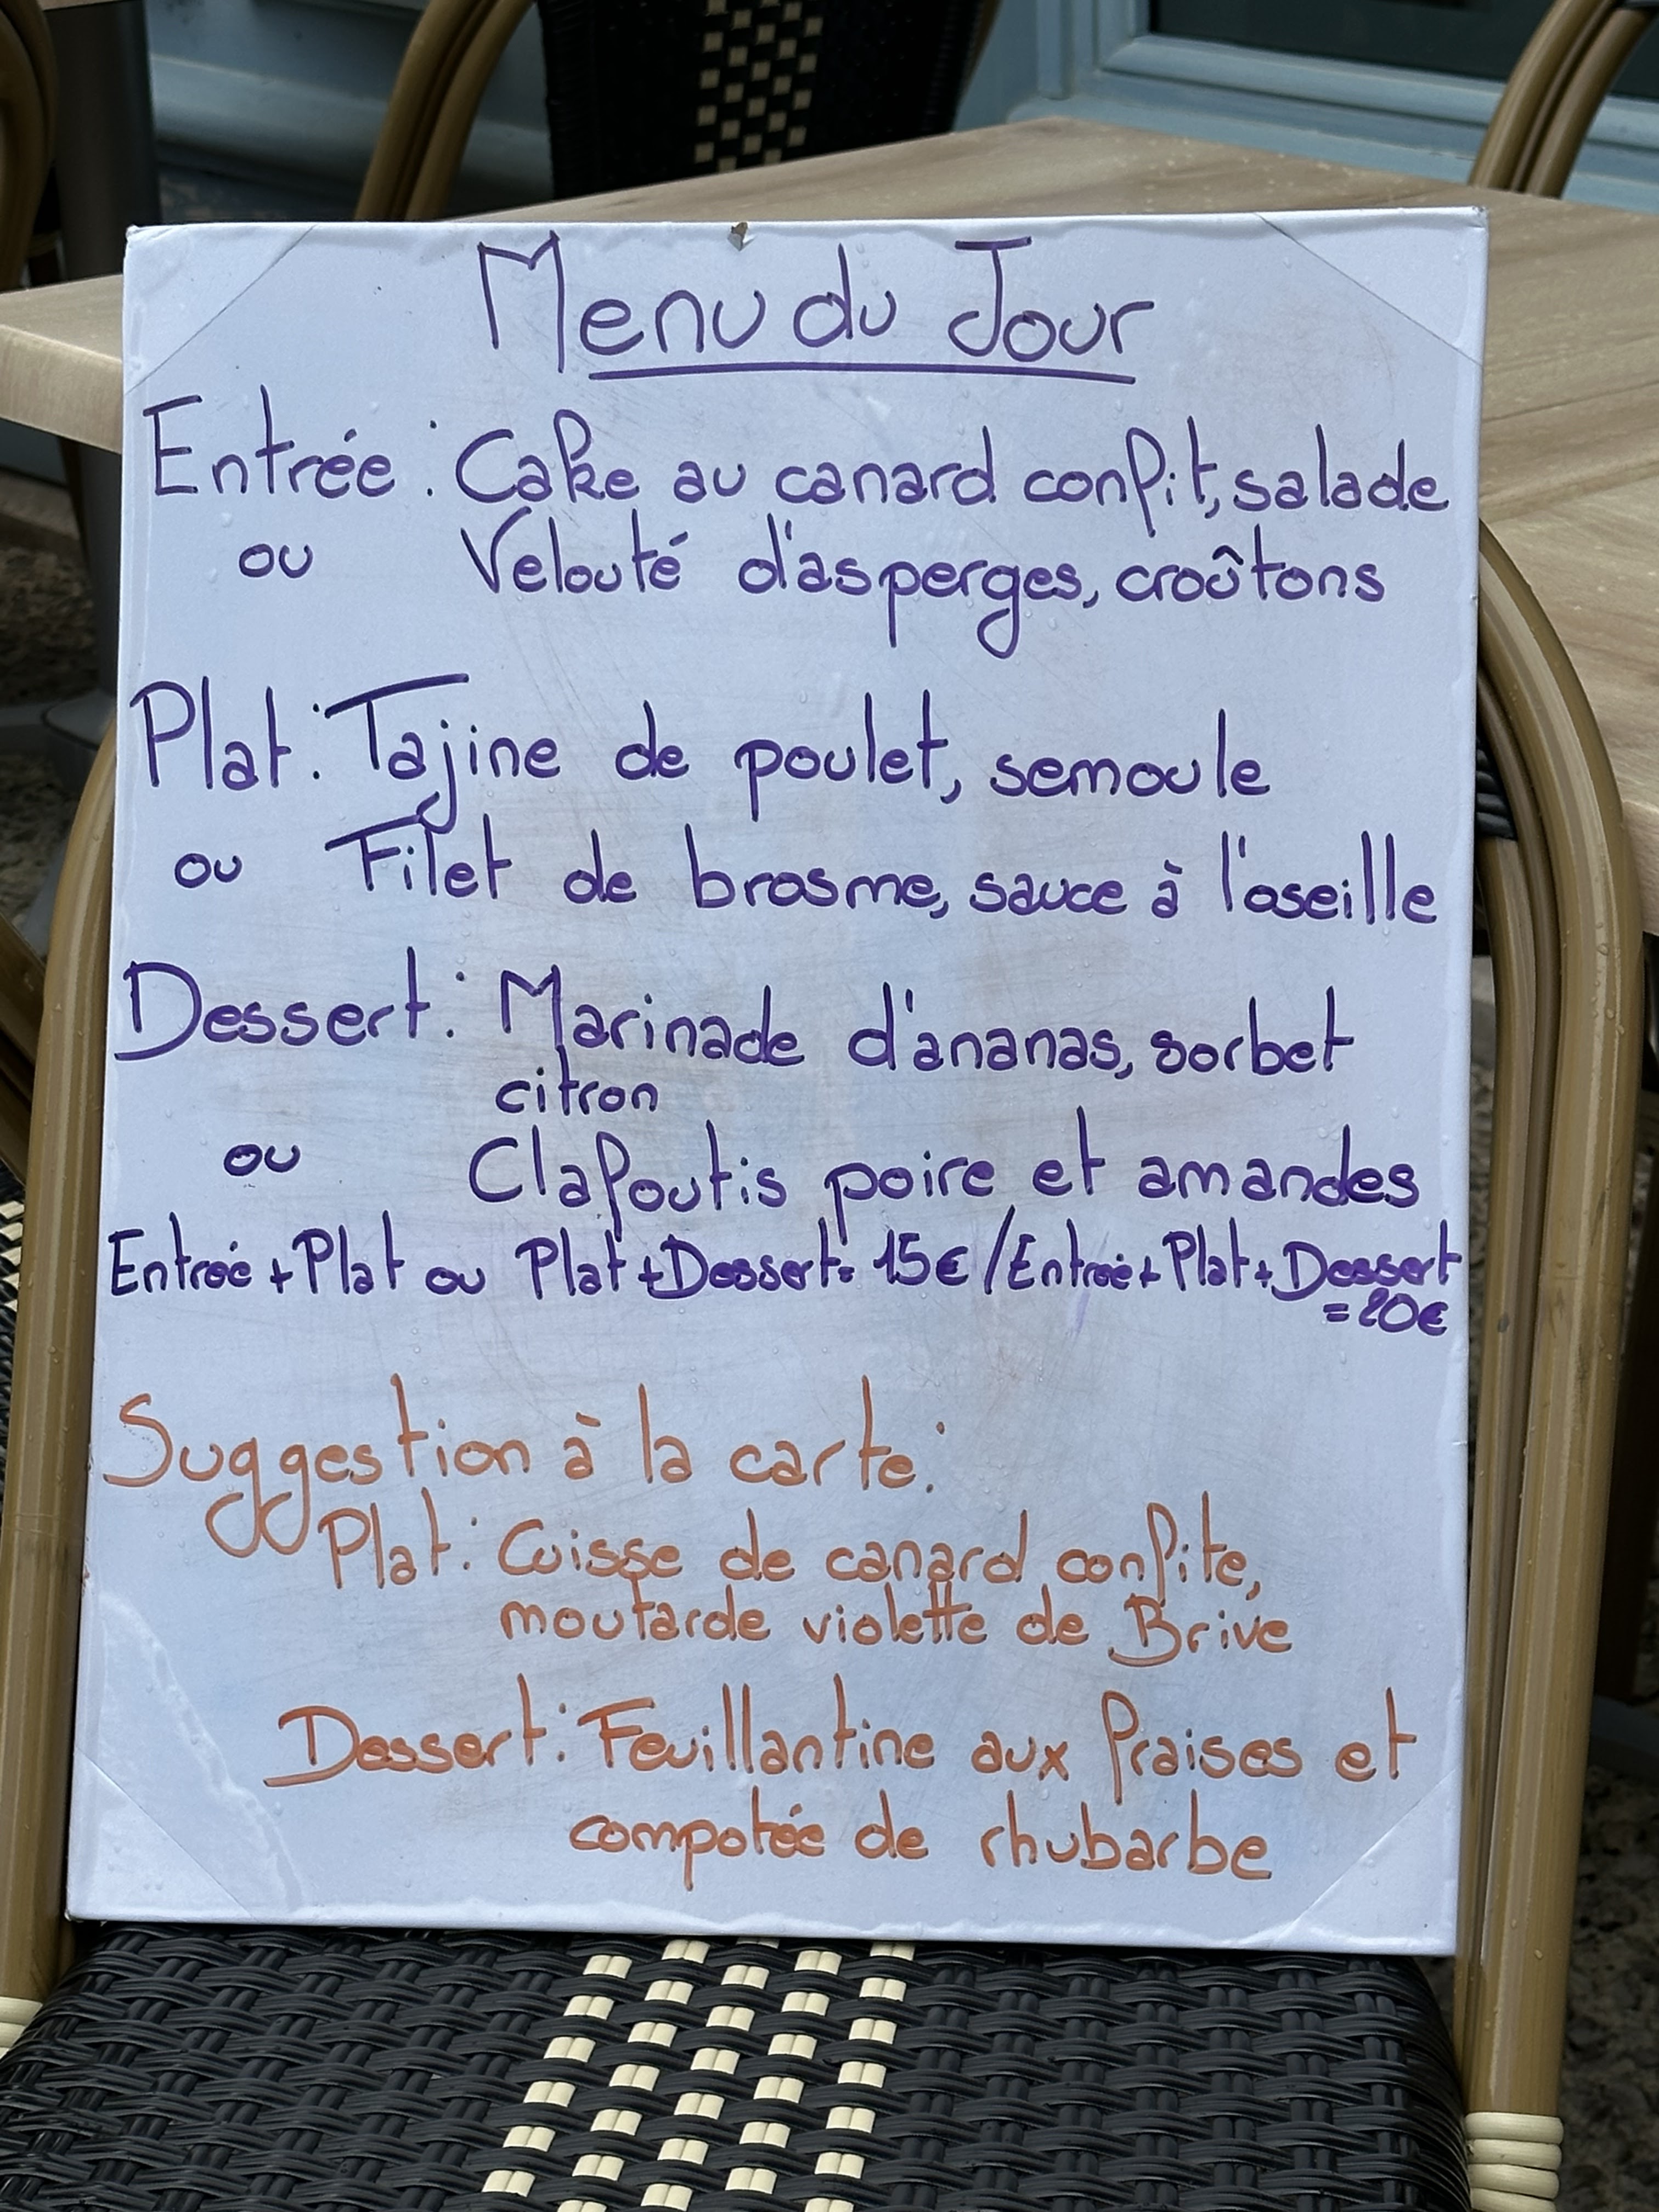 Menu du Jour
Entrée : Cake au canard confit, salade
ou Velouté d'asperges, croûtons
Plat : Tajine de poulet, semoule
ou Filet de brosme, sauce à l'oseille
Dessert : Marinade d'ananas, sorbet
citron
ou Clafoutis poire et amandes
Entrée + Plat ou Plat + Dessert = 15€ / Entrée + Plat + Dessert
= 20€
Suggestion à la carte :
Plat : Cuisse de canard confite,
moutarde violette de Brive
Dessert : Feuillantine aux fraises et
compotée de rhubarbe